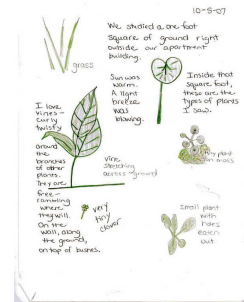 10-5-07
We studied a one foot
square of ground right
outside our apartment
building.
grass
Sun was
warm.
A light
breeze
was
blowing.
Inside that
square foot,
these are the
types of plants
I saw.
I love
vines -
curly
twisty
around
the
branches
of other
plants.
They are
free-
rambling
where
they will.
On the
wall, along
the ground,
on top of bushes.
vine
stretching
across ground
very
tiny
clover
tiny plant
on moss
Small plant
with
holes
eaten
out